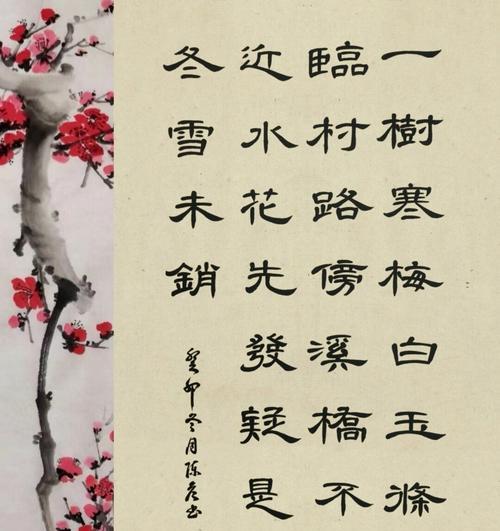 一樹寒梅白玉條
臨村路傍溪橋不
近水花先發疑是
冬雪未銷
癸卯冬月陈书